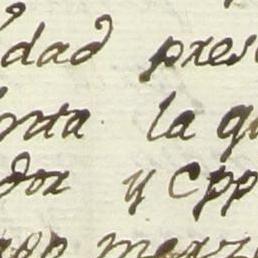 dad pres
nta la qu
dor y Cpp
merz